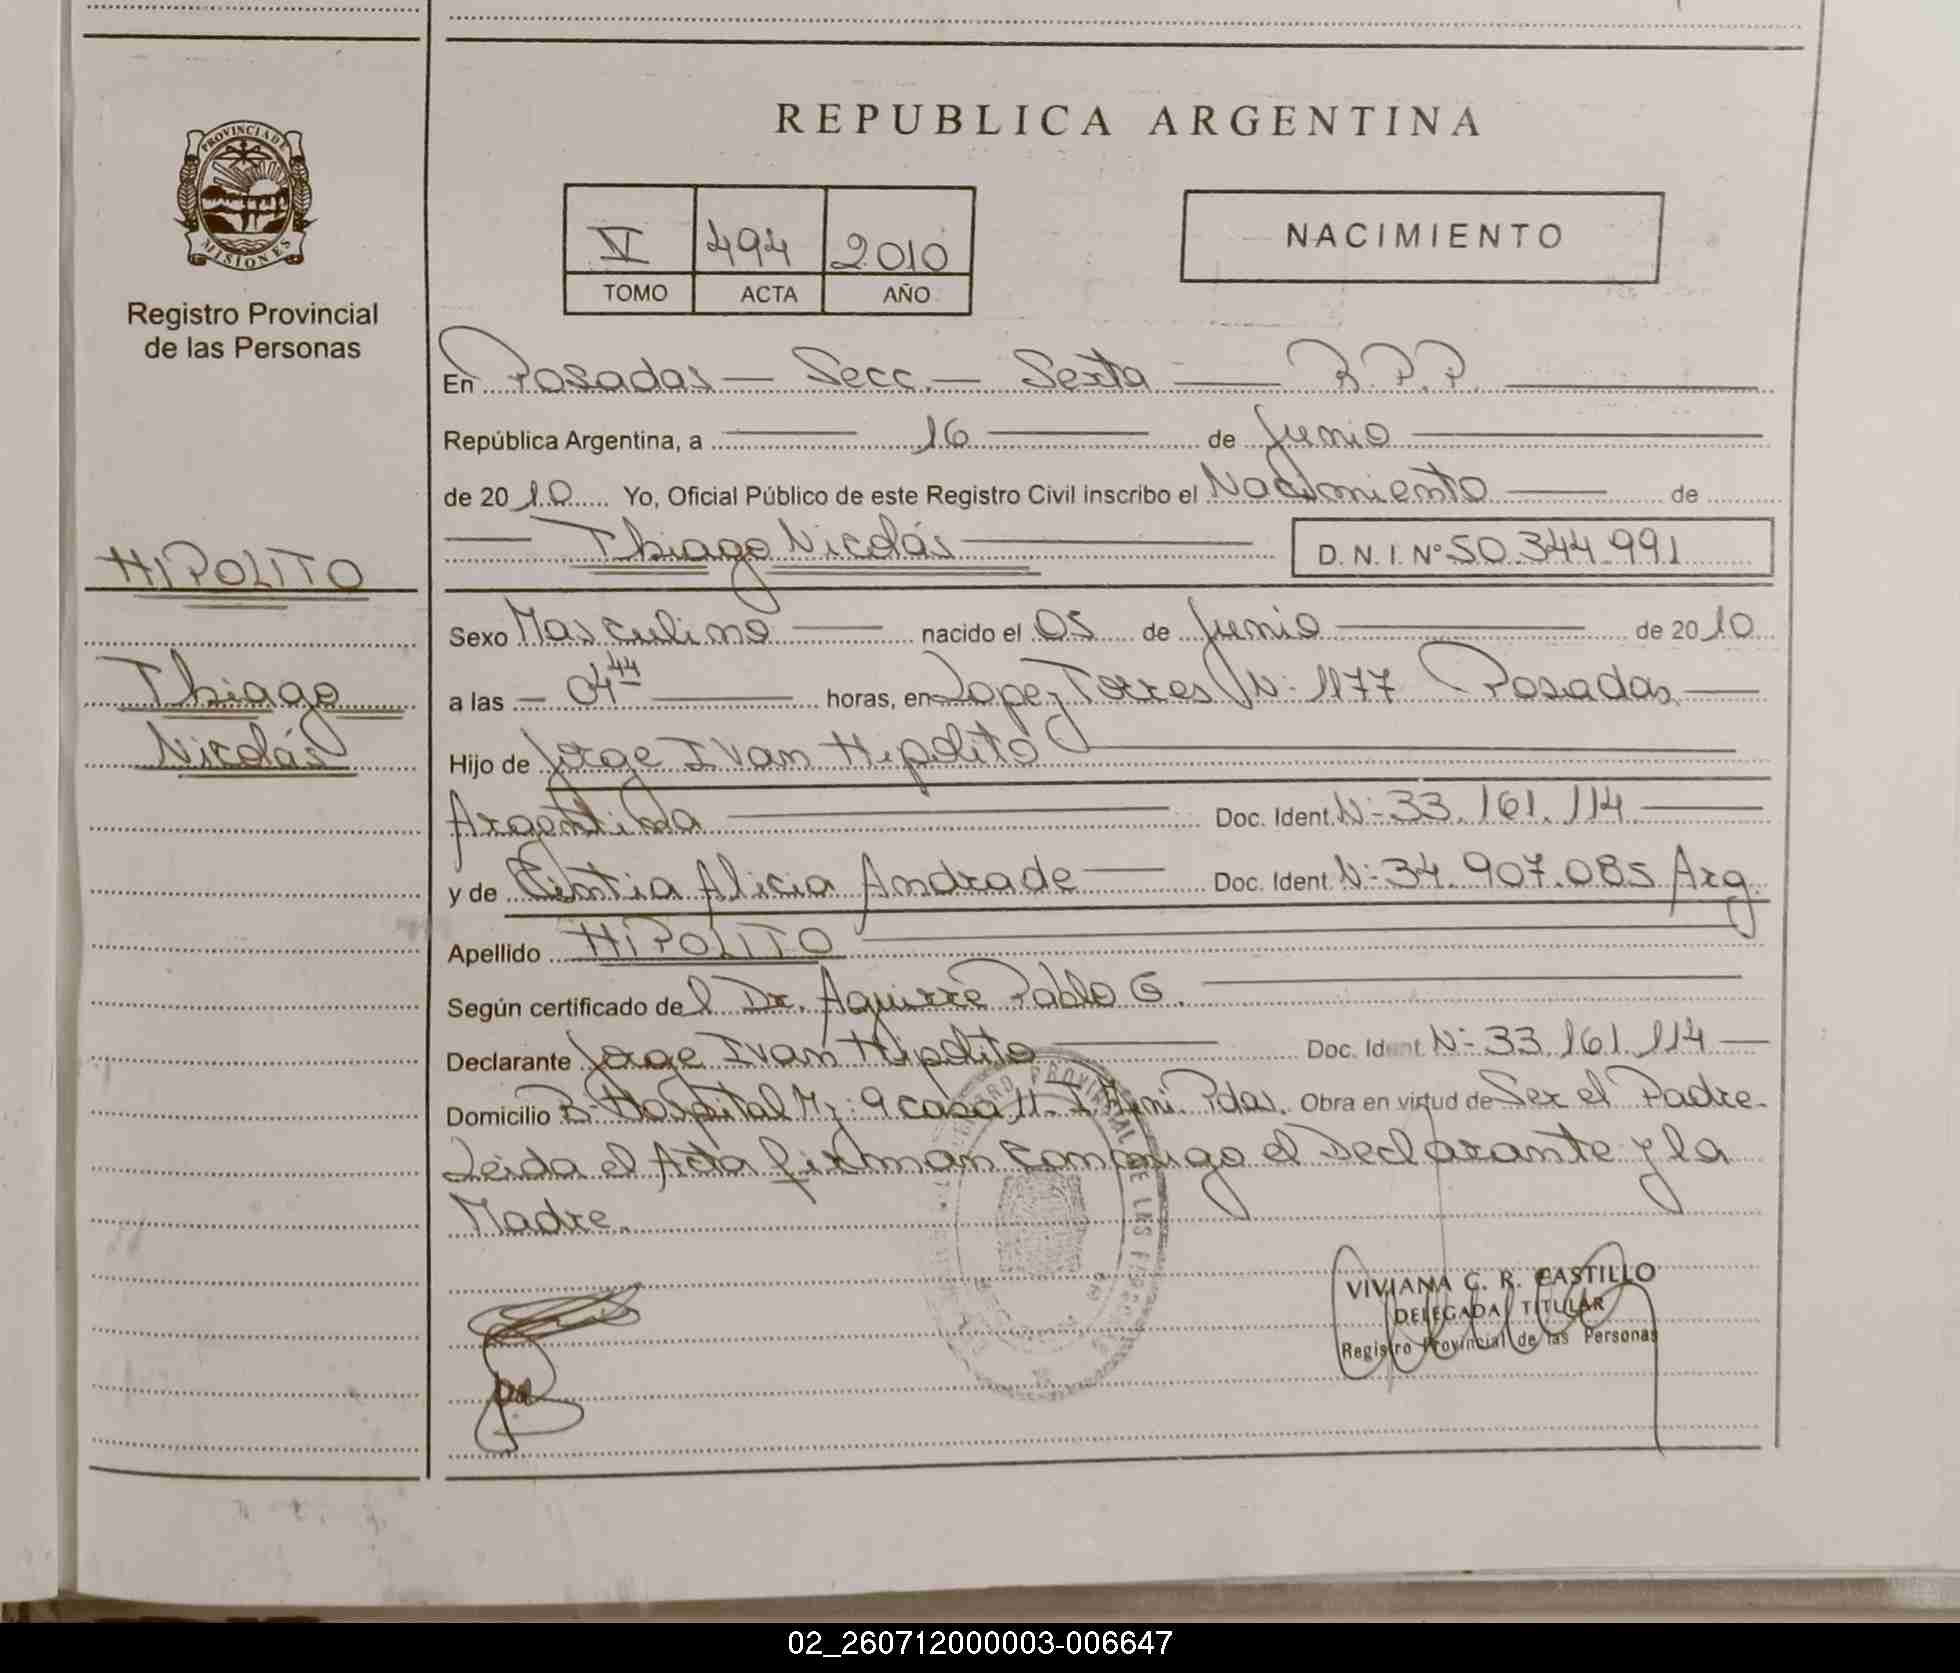 REPUBLICA ARGENTINA
PROVINCIA DE
MISIONES
Registro Provincial
de las Personas
V 494 2010
TOMO ACTA AÑO
NACIMIENTO
En Posadas — Secc. — Sexta — R.P.P.
República Argentina, a 16 de Junio
de 2010 Yo, Oficial Público de este Registro Civil inscribo el Nacimiento de
Thiago Nicolás D. N. I. N° 50.344.991
HIPOLITO
Thiago
Nicolás
Sexo Masculino nacido el 05 de Junio de 2010
a las 04 44 horas, en Lopez Torres N: 1177 Posadas
Hijo de Jorge Ivan Hipolito
Argentina Doc. Ident. N: 33.161.114
y de Cintia Alicia Andrade Doc. Ident. N: 34.907.085 Arg.
Apellido HIPOLITO
Según certificado del Dr. Aguirre Pablo G.
Declarante Jorge Ivan Hipolito Doc. Ident. N: 33.161.114
Domicilio B: Hospital Mz: 9 casa 11 Pdas. Obra en virtud de Ser el Padre.
Leida el Acta firman conmigo el Declarante y la
Madre.
VIVIANA C. R. CASTILLO
DELEGADA TITULAR
Registro Provincial de las Personas
02_260712000003-006647